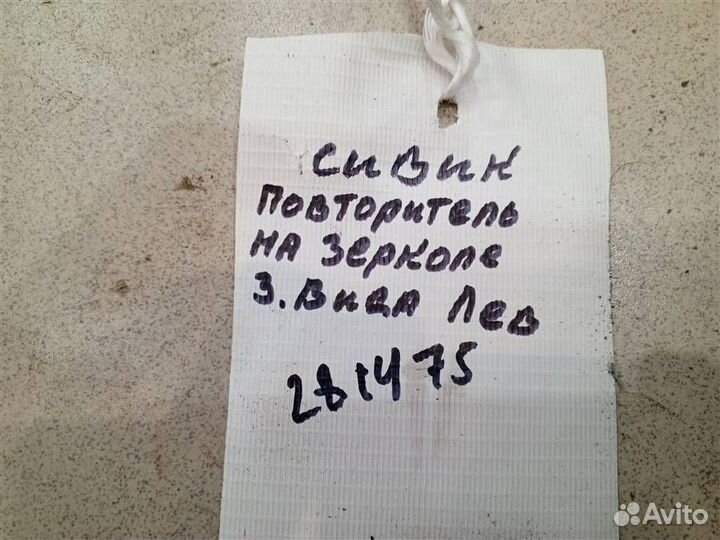 Сивик
Повторитель
на зеркале
З. Вида Лев
281475
Avito